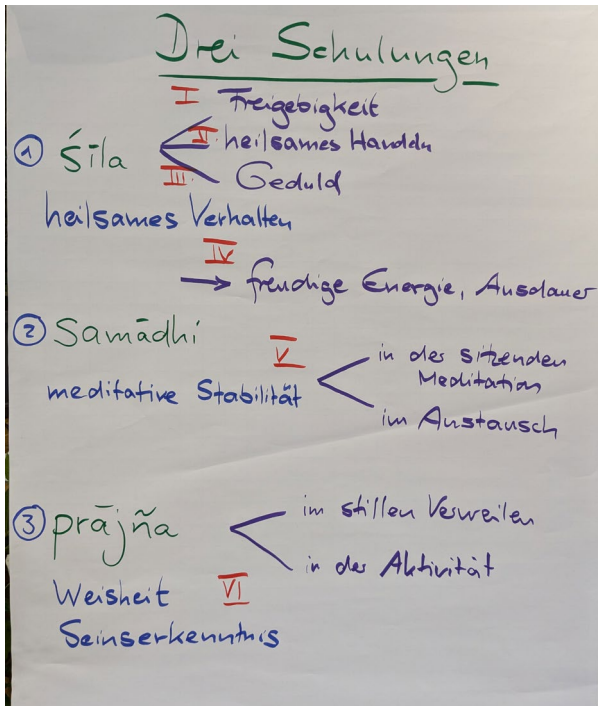 Drei Schulungen
I Freigebigkeit
① śīla II. heilsames Handeln
III. Geduld
heilsames Verhalten
IV
→ freudige Energie, Ausdauer
② Samādhi
V in der sitzenden
Meditation
meditative Stabilität
im Austausch
③ prājña im stillen Verweilen
in der Aktivität
Weisheit VI
Seinserkenntnis